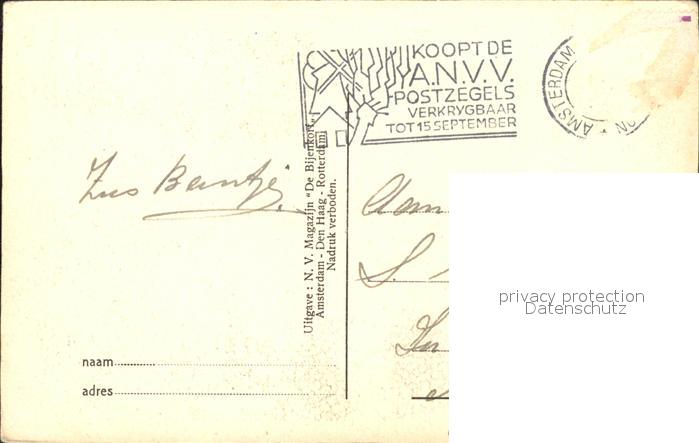 KOOPT DE
A.N.V.V.
POSTZEGELS
VERKRYGBAAR
TOT 15 SEPTEMBER
AMSTERDAM
Zus Bentje
Uitgave: N. V. Magazijn "De Bijenkorf"
Amsterdam - Den Haag - Rotterdam
Nadruk verboden.
Aan
S.
privacy protection
Datenschutz
naam
adres